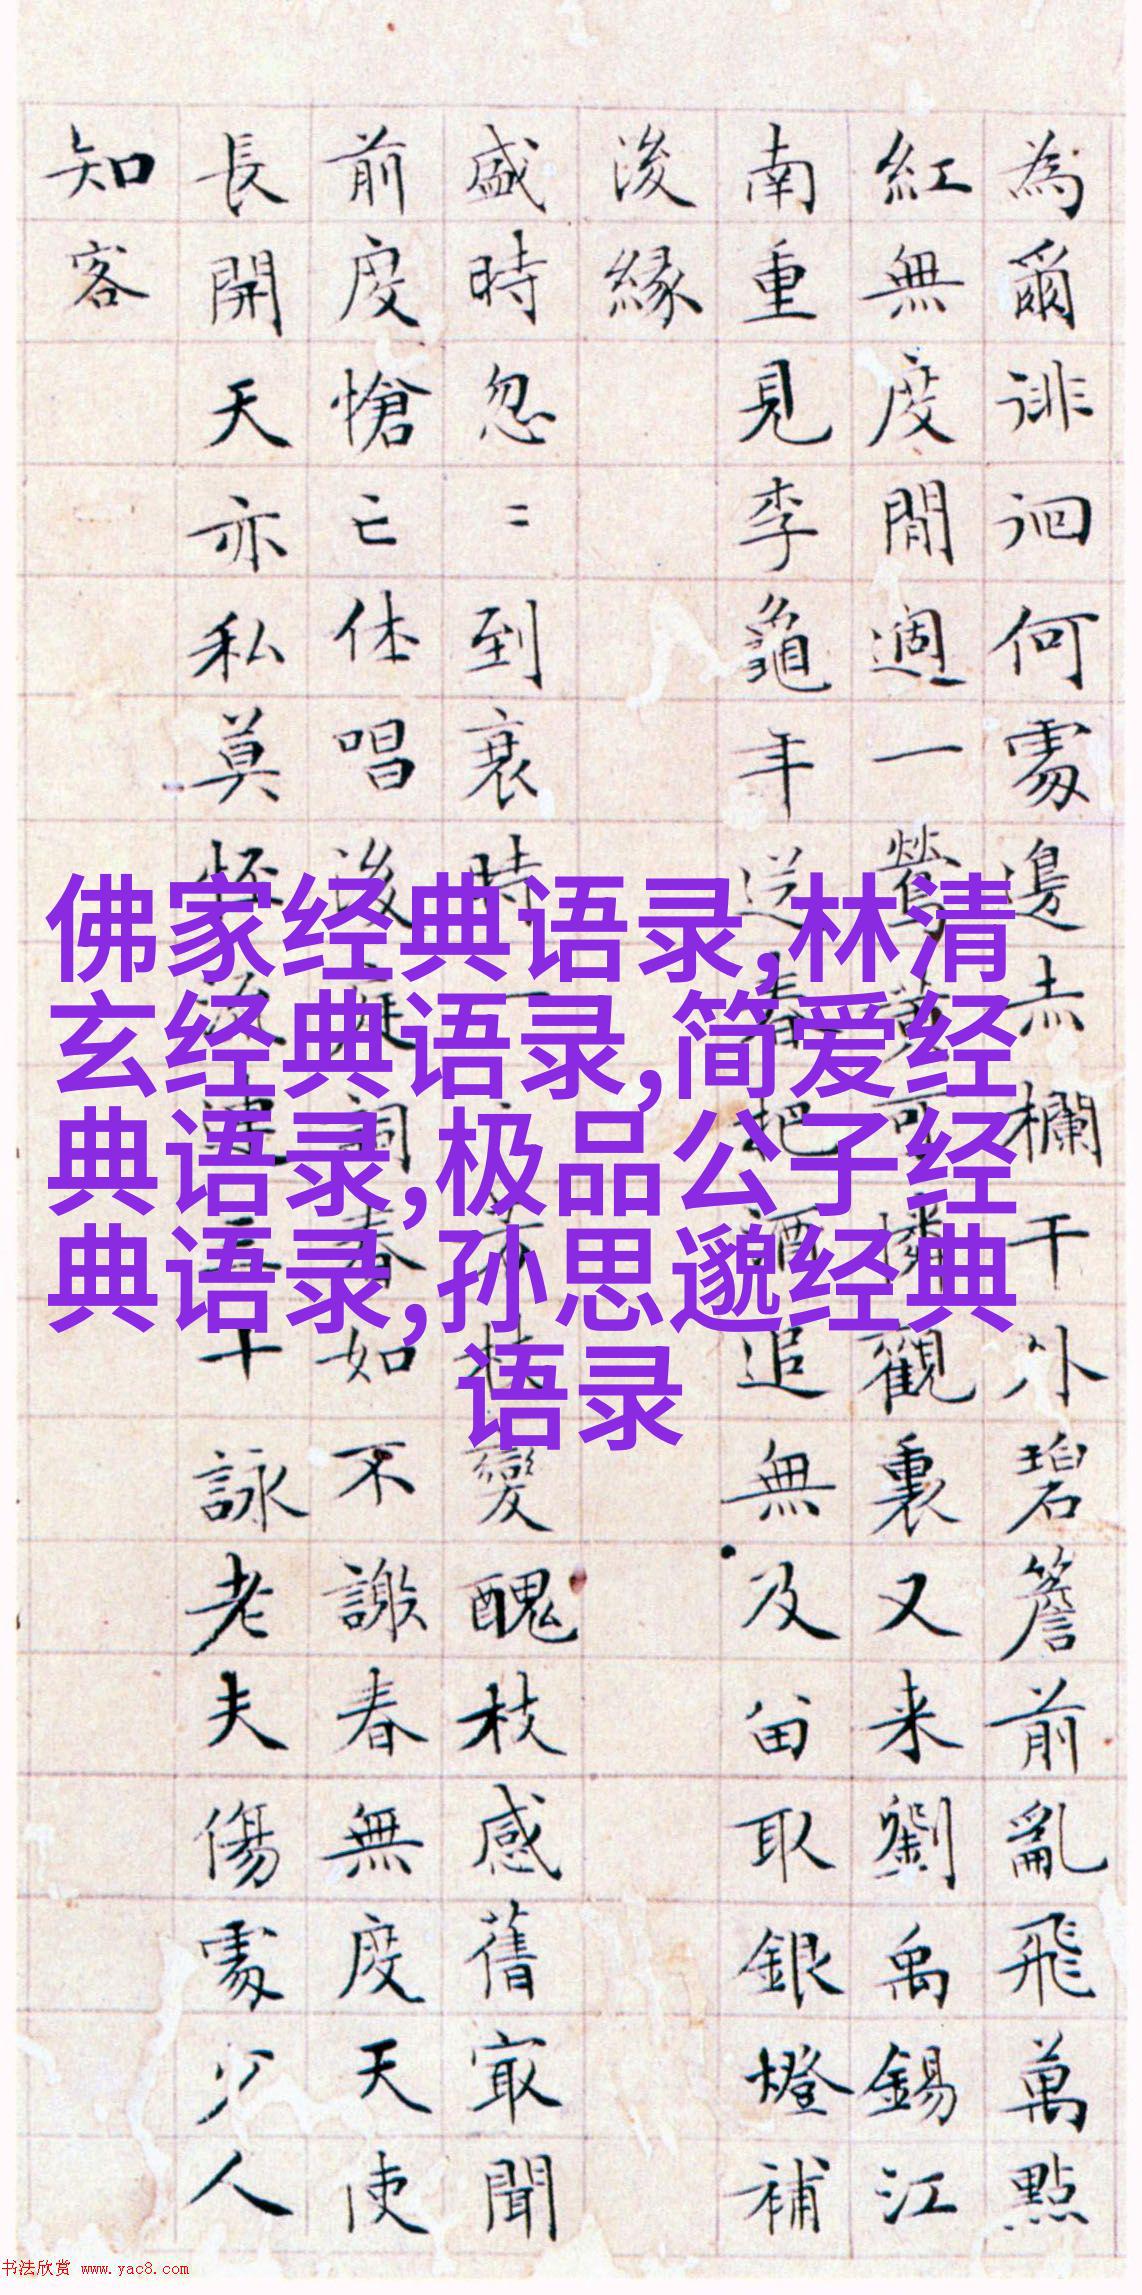 為爾徘徊何處邊赤欄干外碧簷前亂飛萬點
紅無度閒過一鶯可憐觀裏又来劉禹錫江
南重見李龜年送春把酒追無及畄取銀燈補
後緣
盛時忽〻到衰時一枝變醜枝感舊冣聞
前度愴亡休唱後庭詞春如不謝春無度天使
長開天亦私莫怪連三十詠老夫傷處少人
知客
佛家经典语录,林清
玄经典语录,简爱经
典语录,极品公子经
典语录,孙思邈经典
语录
书法欣赏 www.yac8.com